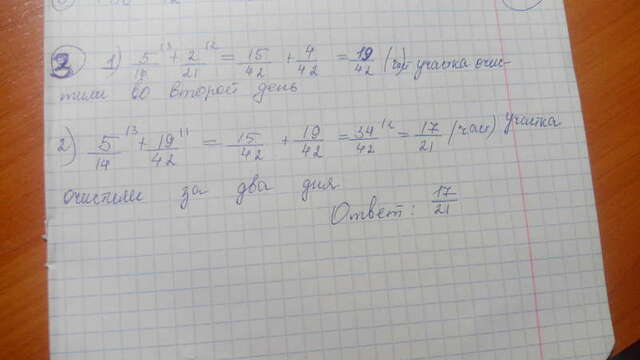 3 1) 5/14 ¹³ + 2/21 ¹² = 15/42 + 4/42 = 19/42 (ч) участка очис-
тили во второй день
2) 5/14 ¹³ + 19/42 ¹¹ = 15/42 + 19/42 = 34/42 = 17/21 (час) участка
очистили за два дня
Ответ: 17/21